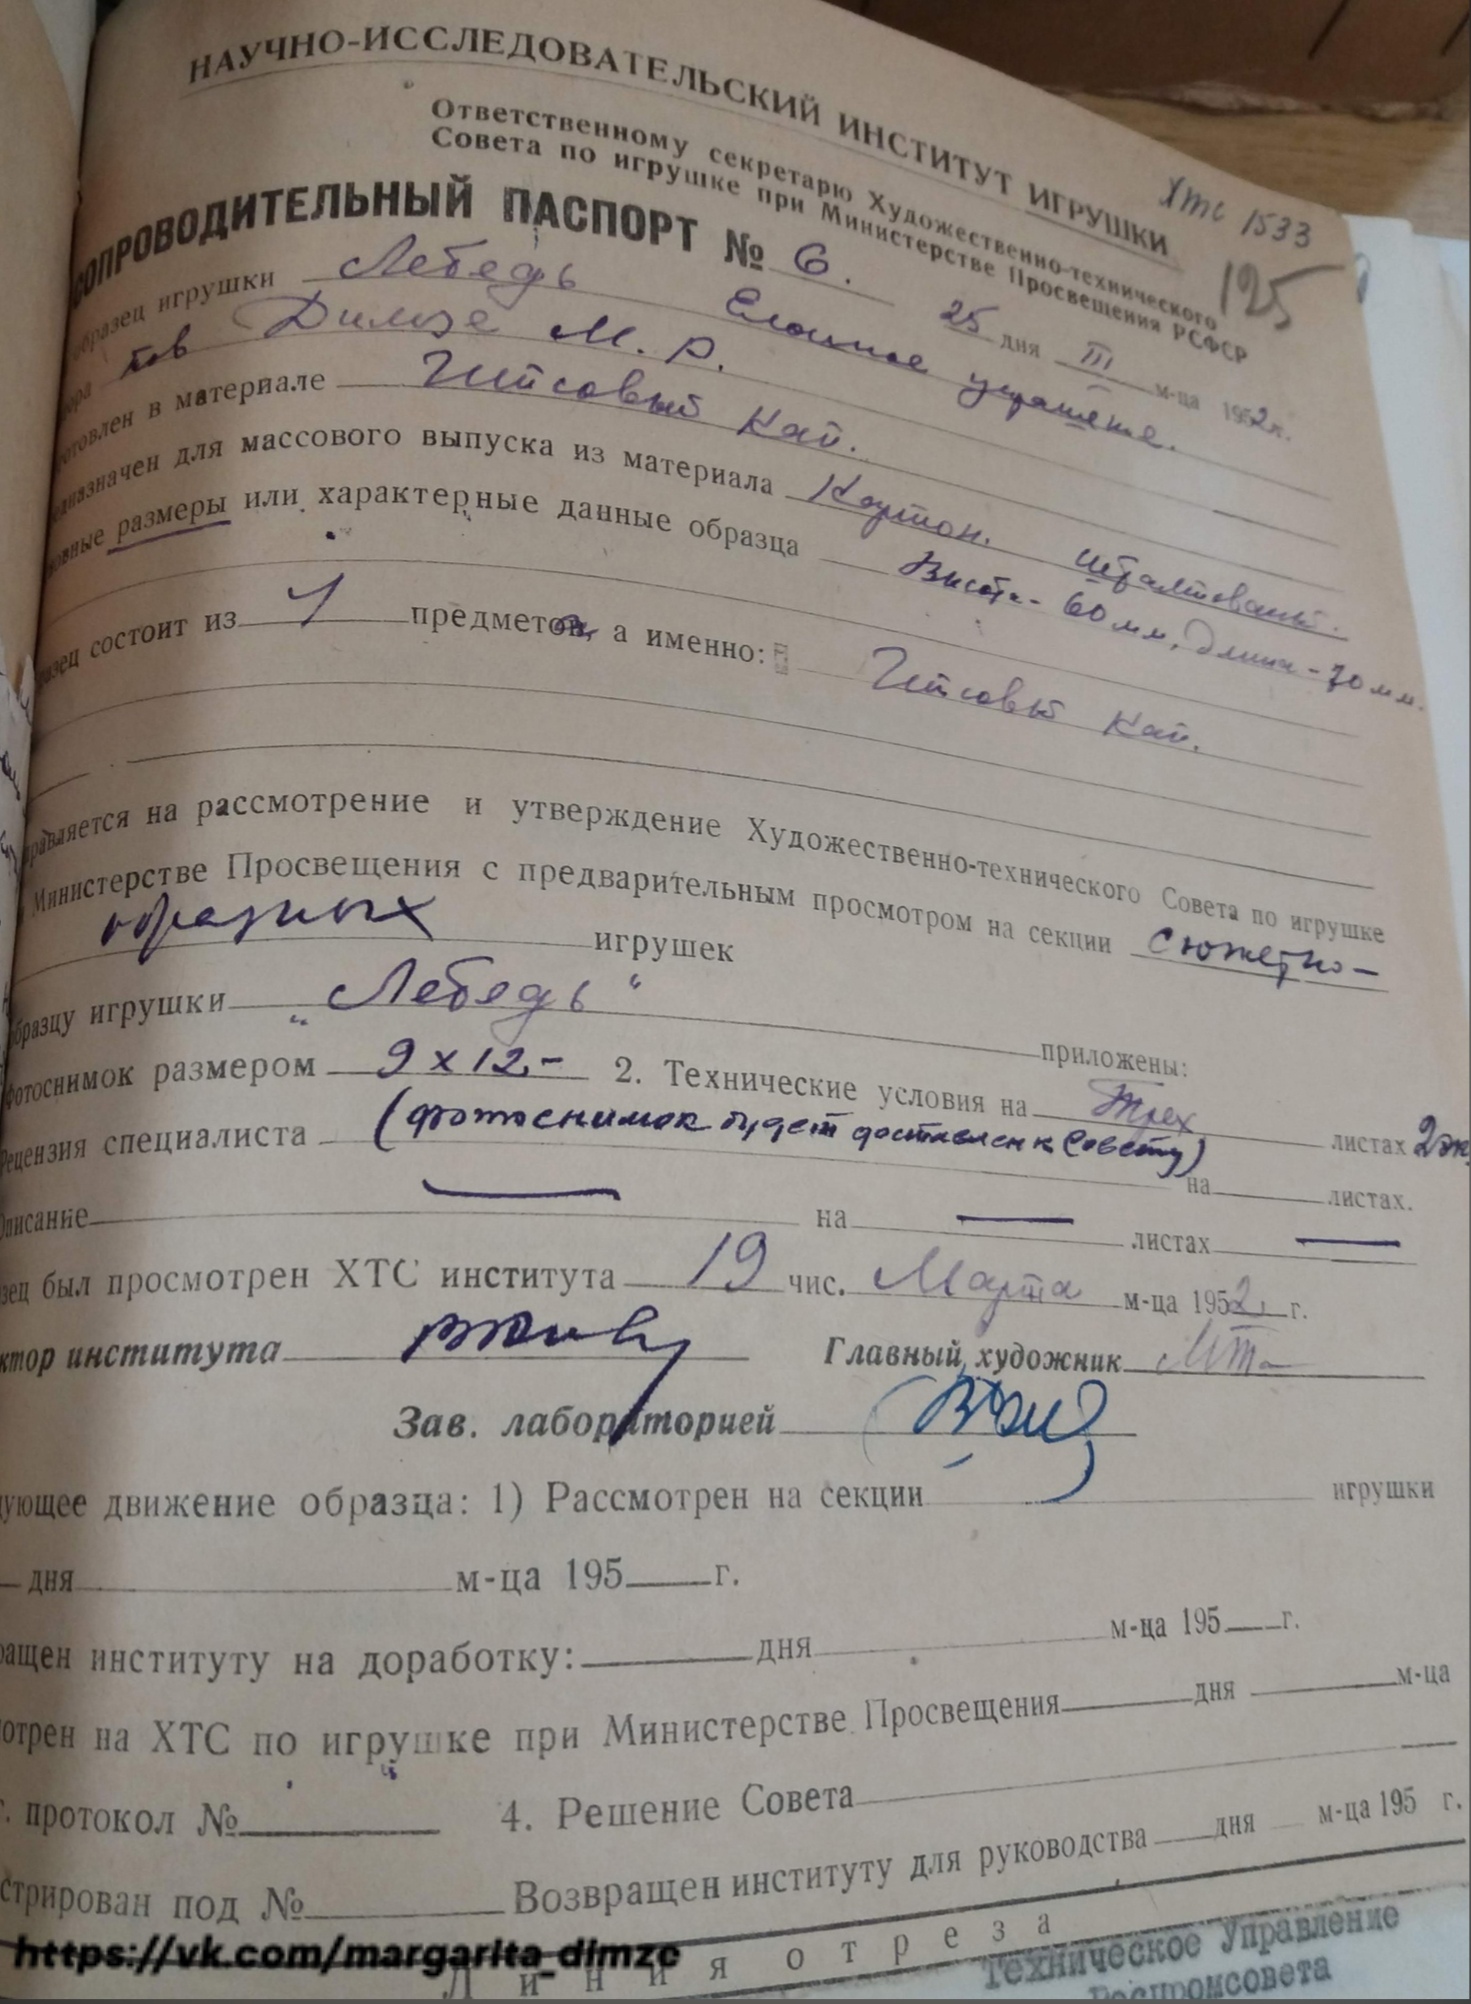 НАУЧНО-ИССЛЕДОВАТЕЛЬСКИЙ ИНСТИТУТ ИГРУШКИ
ХТС 1533
Ответственному секретарю Художественно-технического
Совета по игрушке при Министерстве Просвещения РСФСР
125
СОПРОВОДИТЕЛЬНЫЙ ПАСПОРТ № 6. 25 дня III м-ца 1952 г.
образец игрушки Лебедь Елочное украшение.
тов Димзе М. Р.
готовлен в материале Гипсовый кап.
едназначен для массового выпуска из материала Картон. штампованный.
новные размеры или характерные данные образца Высота - 60 мм, длина - 70 мм.
разец состоит из 1 предметов, а именно: Гипсовый кап.
правляется на рассмотрение и утверждение Художественно-технического Совета по игрушке
и Министерстве Просвещения с предварительным просмотром на секции сюжетно-
образных игрушек
образцу игрушки „Лебедь“ приложены:
фотоснимок размером 9 х 12.- 2. Технические условия на трех листах 2 эк
(фотоснимок будет доставлен к Совету)
Рецензия специалиста на листах.
Описание — на — листах —
зец был просмотрен ХТС института 19 чис. Марта м-ца 1952 г.
ктор института Главный художник
Зав. лабораторией
дующее движение образца: 1) Рассмотрен на секции игрушки
дня м-ца 195 г.
ращен институту на доработку: дня м-ца 195 г.
отрен на ХТС по игрушке при Министерстве Просвещения дня м-ца
г. протокол № 4. Решение Совета
стрирован под № Возвращен институту для руководства дня м-ца 195 г.
Линия отреза
https://vk.com/margarita_dimze
Техническое Управление
Роспромсовета